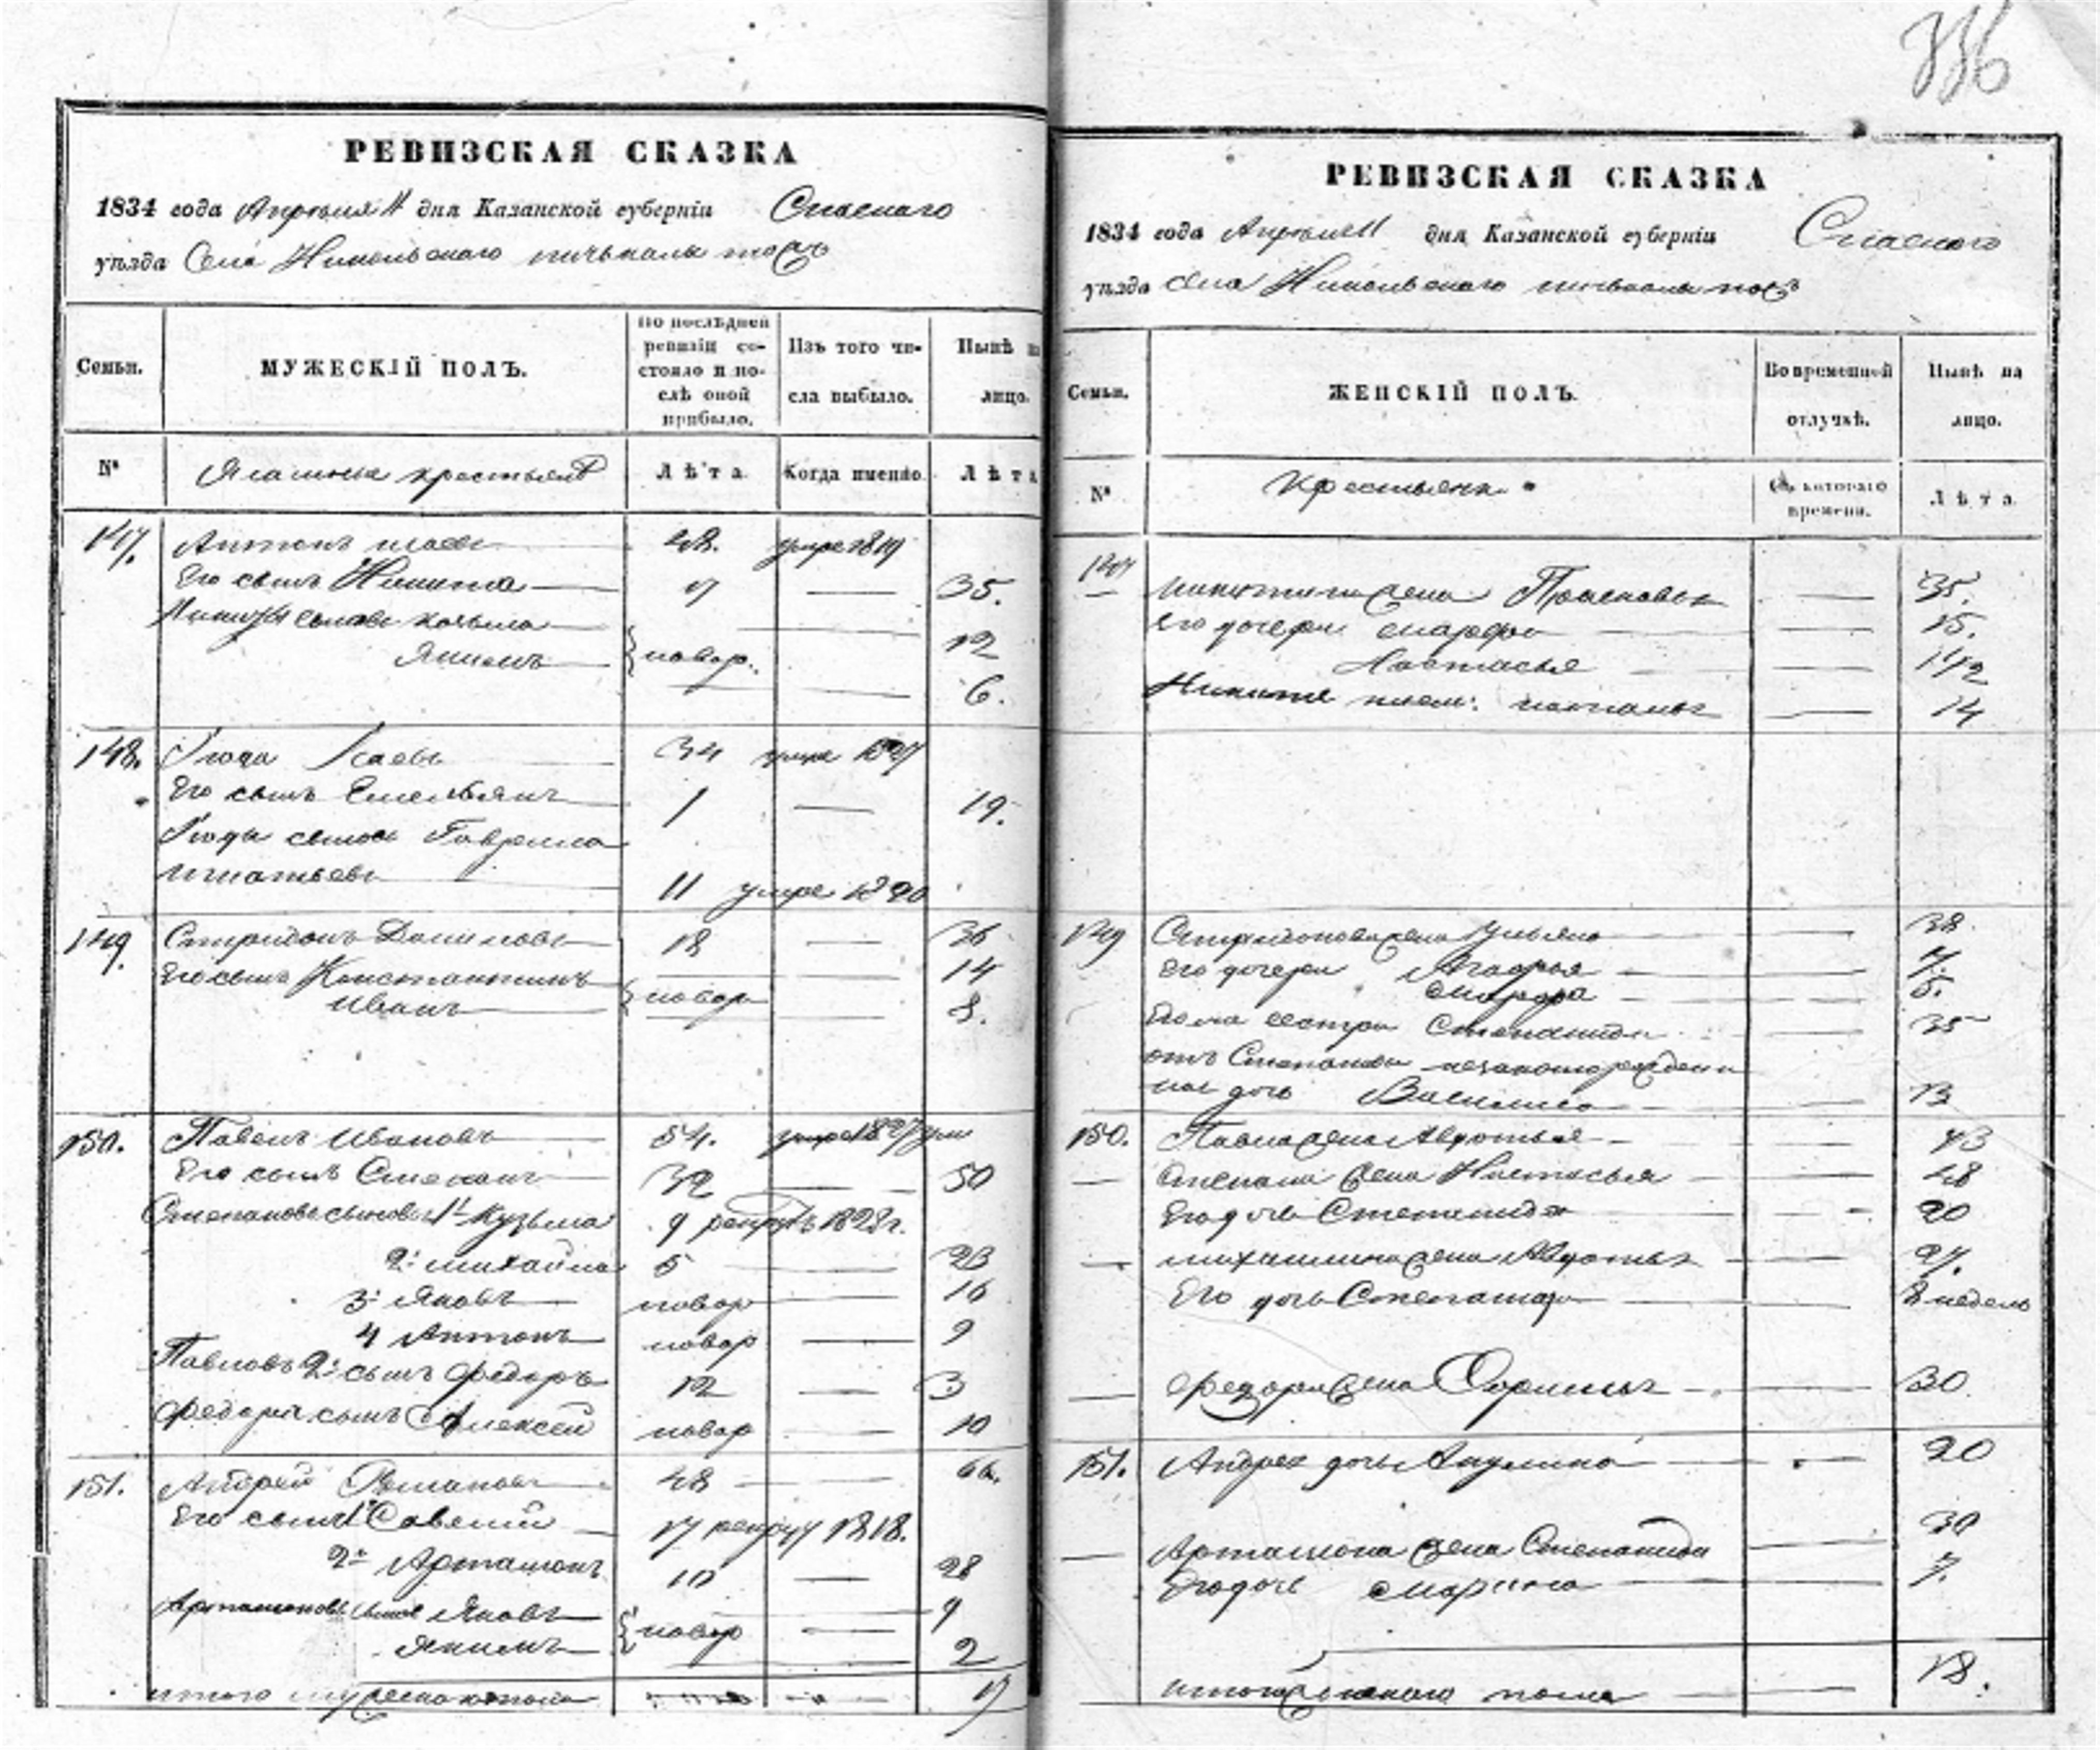 336
РЕВИЗСКАЯ СКАЗКА
1834 года Апреля 11 дня Казанской губерніи Спаскаго
уѣзда Села Никольскаго
Семьи. МУЖЕСКІЙ ПОЛЪ. По послѣдней ревизіи состояло и послѣ оной прибыло. Изъ того числа выбыло. Нынѣ на лицо.
№ крестьяне Лѣта Когда именно Лѣта
147. Антонъ 48. умре 1819
Его сынъ Никита 35.
Никиты сыновья Козьма 12
Якимъ новор. 6.
148. Исаевъ 34 умре
Его сынъ Емельянъ 1 19.
Гаврила
Игнатьевъ 11 умре 1820
149. Спиридонъ Даниловъ 18 36
Его сынъ Константинъ 14
Иванъ новор 8.
150. Павелъ Ивановъ 54. умре 1827
Его сынъ Степанъ 32 50
Степановы сыновья 1й Кузьма 9 рекрутъ 1828г.
2й Михайла 5 23
3й Яковъ новор 16
4 Антонъ новор 9
Павловъ 2й сынъ Федоръ 12 3
Федора сынъ Алексей новор 10
151. Андрей Романовъ 48 66.
Его сынъ 1й Савелий 17 рекрут 1818.
2й Артамонъ 10 28
Артамоновы Яковъ 9
Якимъ новор 2
итого мужеска пола 17
РЕВИЗСКАЯ СКАЗКА
1834 года Апреля 11 дня Казанской губерніи Спаскаго
уѣзда Села Никольскаго
Семьи. ЖЕНСКІЙ ПОЛЪ. Во временной отлучкѣ. Нынѣ на лицо.
№ Крестьянк Съ котораго времени. Лѣта
147 Никитина жена Прасковья 35.
Его дочери Марфа 15.
Настасья 1 1/2
Никите 14
149 Спиридонова жена Ульяна 38.
Его дочери Агафья 7.
Марфа 5.
Его же сестра Степанида 35
отъ Степаниды незаконорожден
ная дочь Василиса 13
150. Павла жена Авдотья 43
Степана жена Настасья 48
Его дочь Степанида 20
Михайлина жена Авдотья 27.
Его дочь 8 недель
Федора жена 30.
151. Андрея дочь Акулина 20
Артамона жена Степанида 30
Его дочь Марина 7.
итого женскаго пола 18.